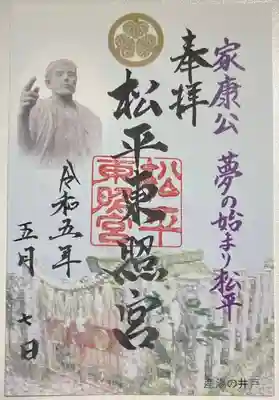 家康公 夢の始まり松平
奉拝
松平東照宮
松平
東照宮
令和五年
五月 七日
産湯の井戸